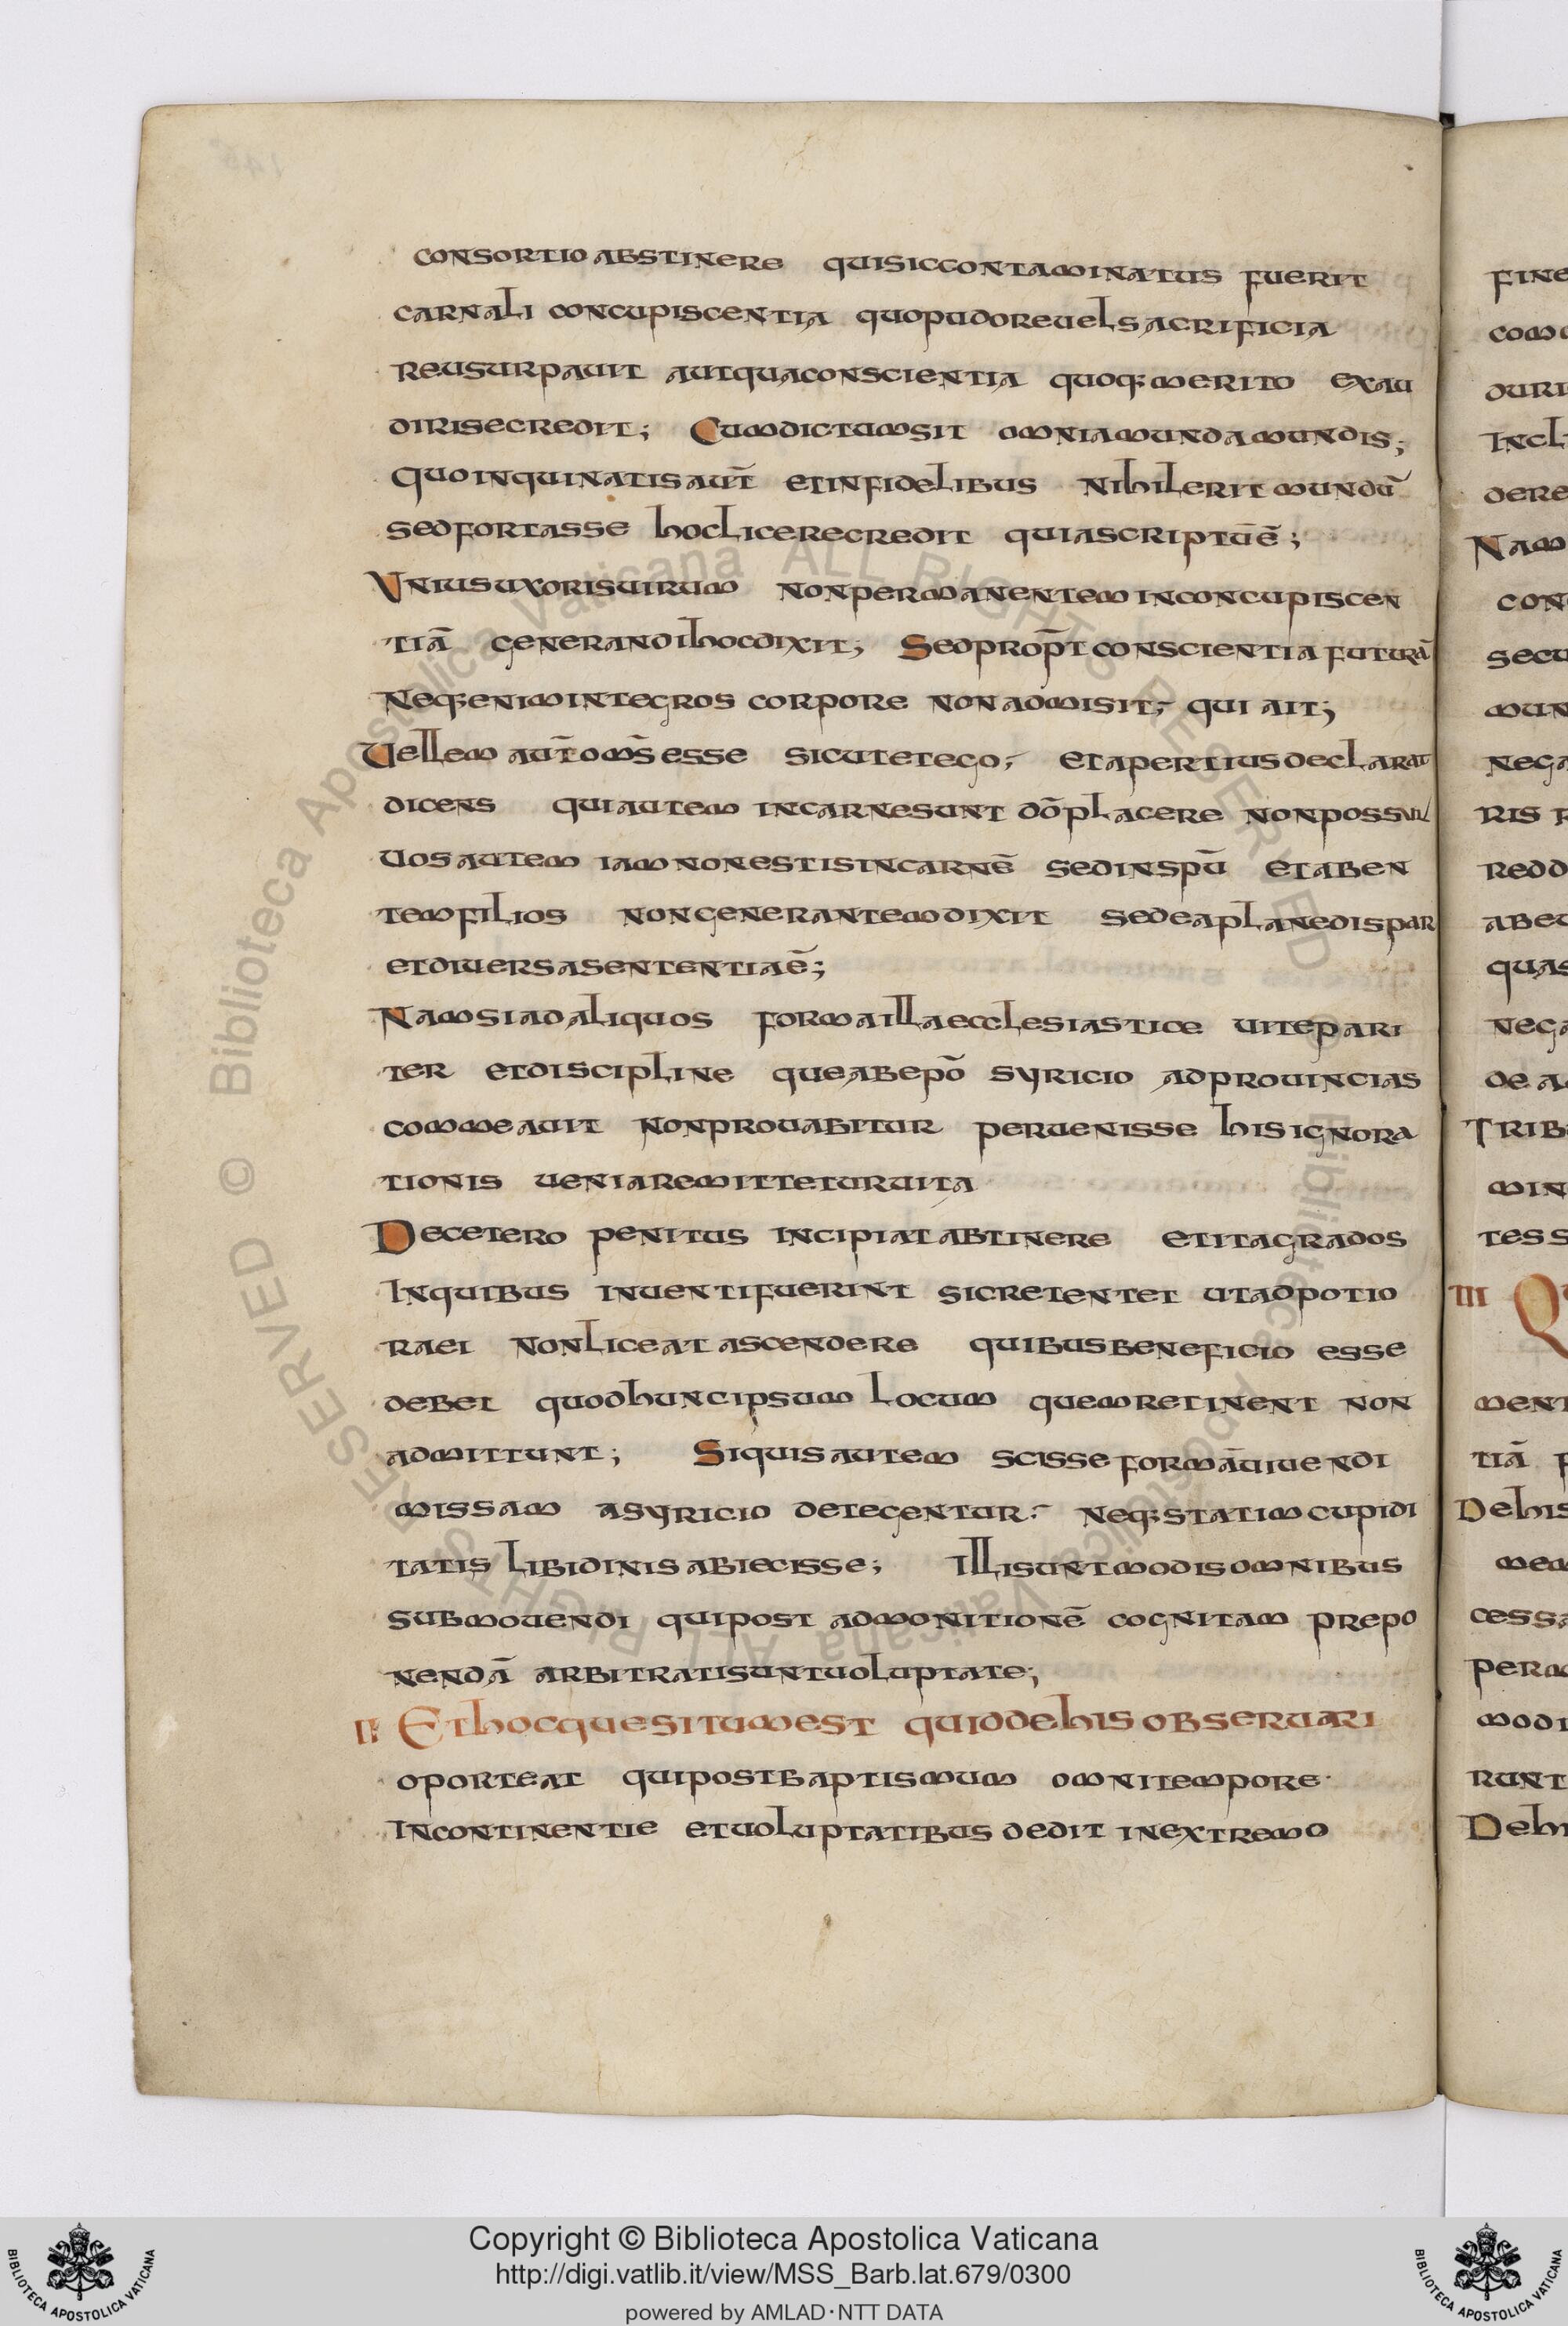 consortio abstinere quisiccontaminatus fuerit
carnali concupiscentia quopudoreuelsacrificia
reusurpauit autquaconscientia quoq;merito exau
dirisecredit; Cumdictumsit omniamundamundis;
Quoinquinatisaut̄ etinfidelibus nihilerit mundū
sedfortasse hoclicerecredit quiascriptūē;
Uniusuxorisuirum nonpermanentem inconcupiscen
tiā generandihocdixit; Sedprop̄t conscientia futurā
Neq;enimintegros corpore nonadmisit; qui ait;
Uellem aut̄om̄sesse sicutetego; etapertiusdeclarat
dicens quiautem incarnesunt dōplacere nonpossunt
uosautem iamnonestisincarnē sedinspū etaben
temfilios nongenerantemdixit sedeaplanedispar
etdiuersasententiaē;
Namsiadaliquos formaillaecclesiastice uitepari
ter etdiscipline queabepō syricio adprouincias
commeauit nonprouabitur peruenisse hisignora
tionis ueniaremitteturuita
Decetero penitus incipiatabtinere etitagrados
Inquibus inuentifuerint sicretentet utadpotio
raei nonliceatascendere quibusbeneficio esse
debet quodhuncipsum locum quemretinent non
admittunt; Siquisautem scisseformāuiuendi
missam asyricio detegentur; neq;statimcupidi
tatis libidinisabiecisse; Illisuntmodisomnibus
submouendi quipost admonitionē cognitam prepo
nendā arbitratisuntuoluptate;
II Ethocquesitumest quiddehisobseruari
oporteat quipostbaptismum omnitempore
incontinentie etuoluptatibus dedit inextremo
fine
duri
Incl
dere
Nam
con
secu
mun
nega
ris
redd
quas
nega
de a
Trib
min
tess
III Q
ment
tiā
Dehis
mem
cessa
perm
modi
runt
Dehi
© Biblioteca Apostolica Vaticana ALL RIGHTS RESERVED
© Biblioteca Apostolica Vaticana ALL RIGHTS RESERVED
BIBLIOTECA APOSTOLICA VATICANA
Copyright © Biblioteca Apostolica Vaticana
http://digi.vatlib.it/view/MSS_Barb.lat.679/0300
powered by AMLAD·NTT DATA
BIBLIOTECA APOSTOLICA VATICANA